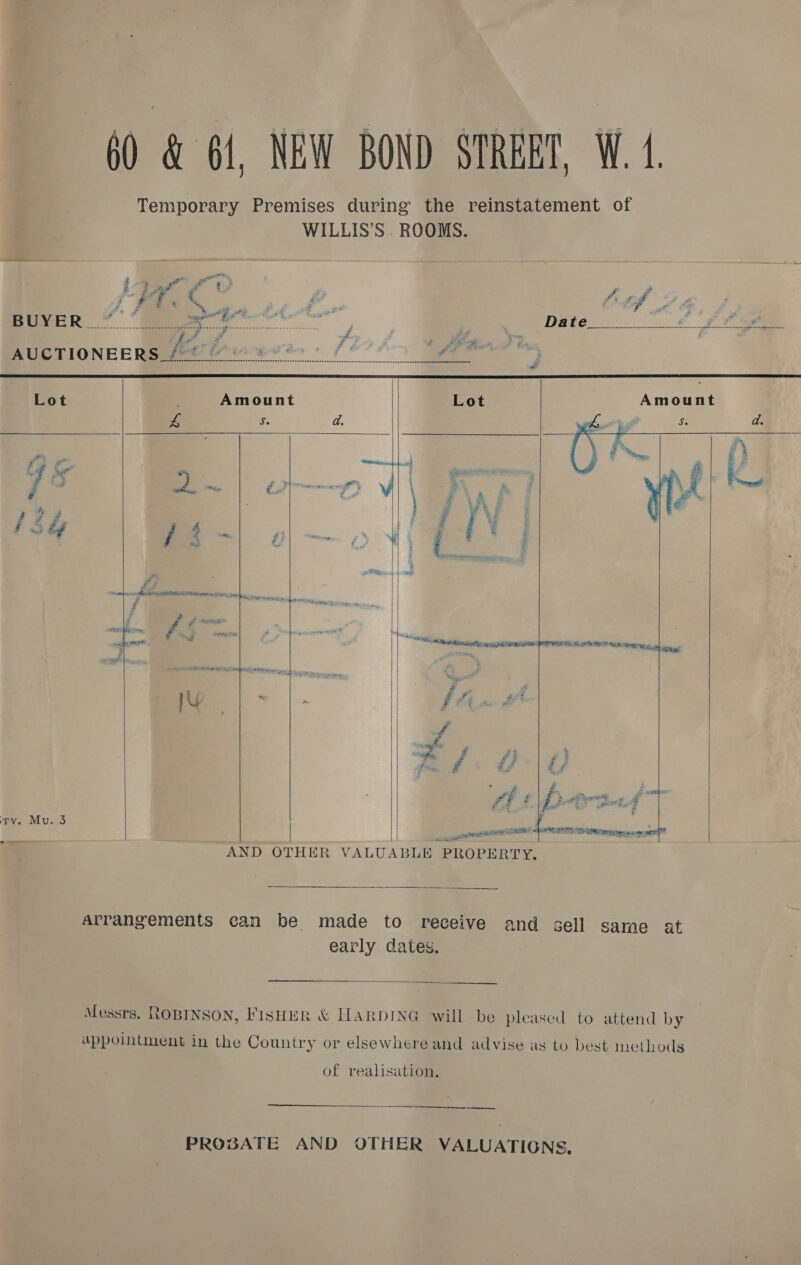 60 & 61, NEW BOND STREET, W. 1.
Temporary Premises during the reinstatement of
WILLIS'S ROOMS.
BUYER
Date
AUCTIONEERS
Lot Amount Lot Amount
£ s. d. £ s. d.
98 2 - 0 - 0
134 14 - 0 - 0
£ 1. 0. 0
14 - -
Mu. 3
AND OTHER VALUABLE PROPERTY.
Arrangements can be made to receive and sell same at
early dates.
Messrs. ROBINSON, FISHER & HARDING will be pleased to attend by
appointment in the Country or elsewhere and advise as to best methods
of realisation.
PROBATE AND OTHER VALUATIONS.